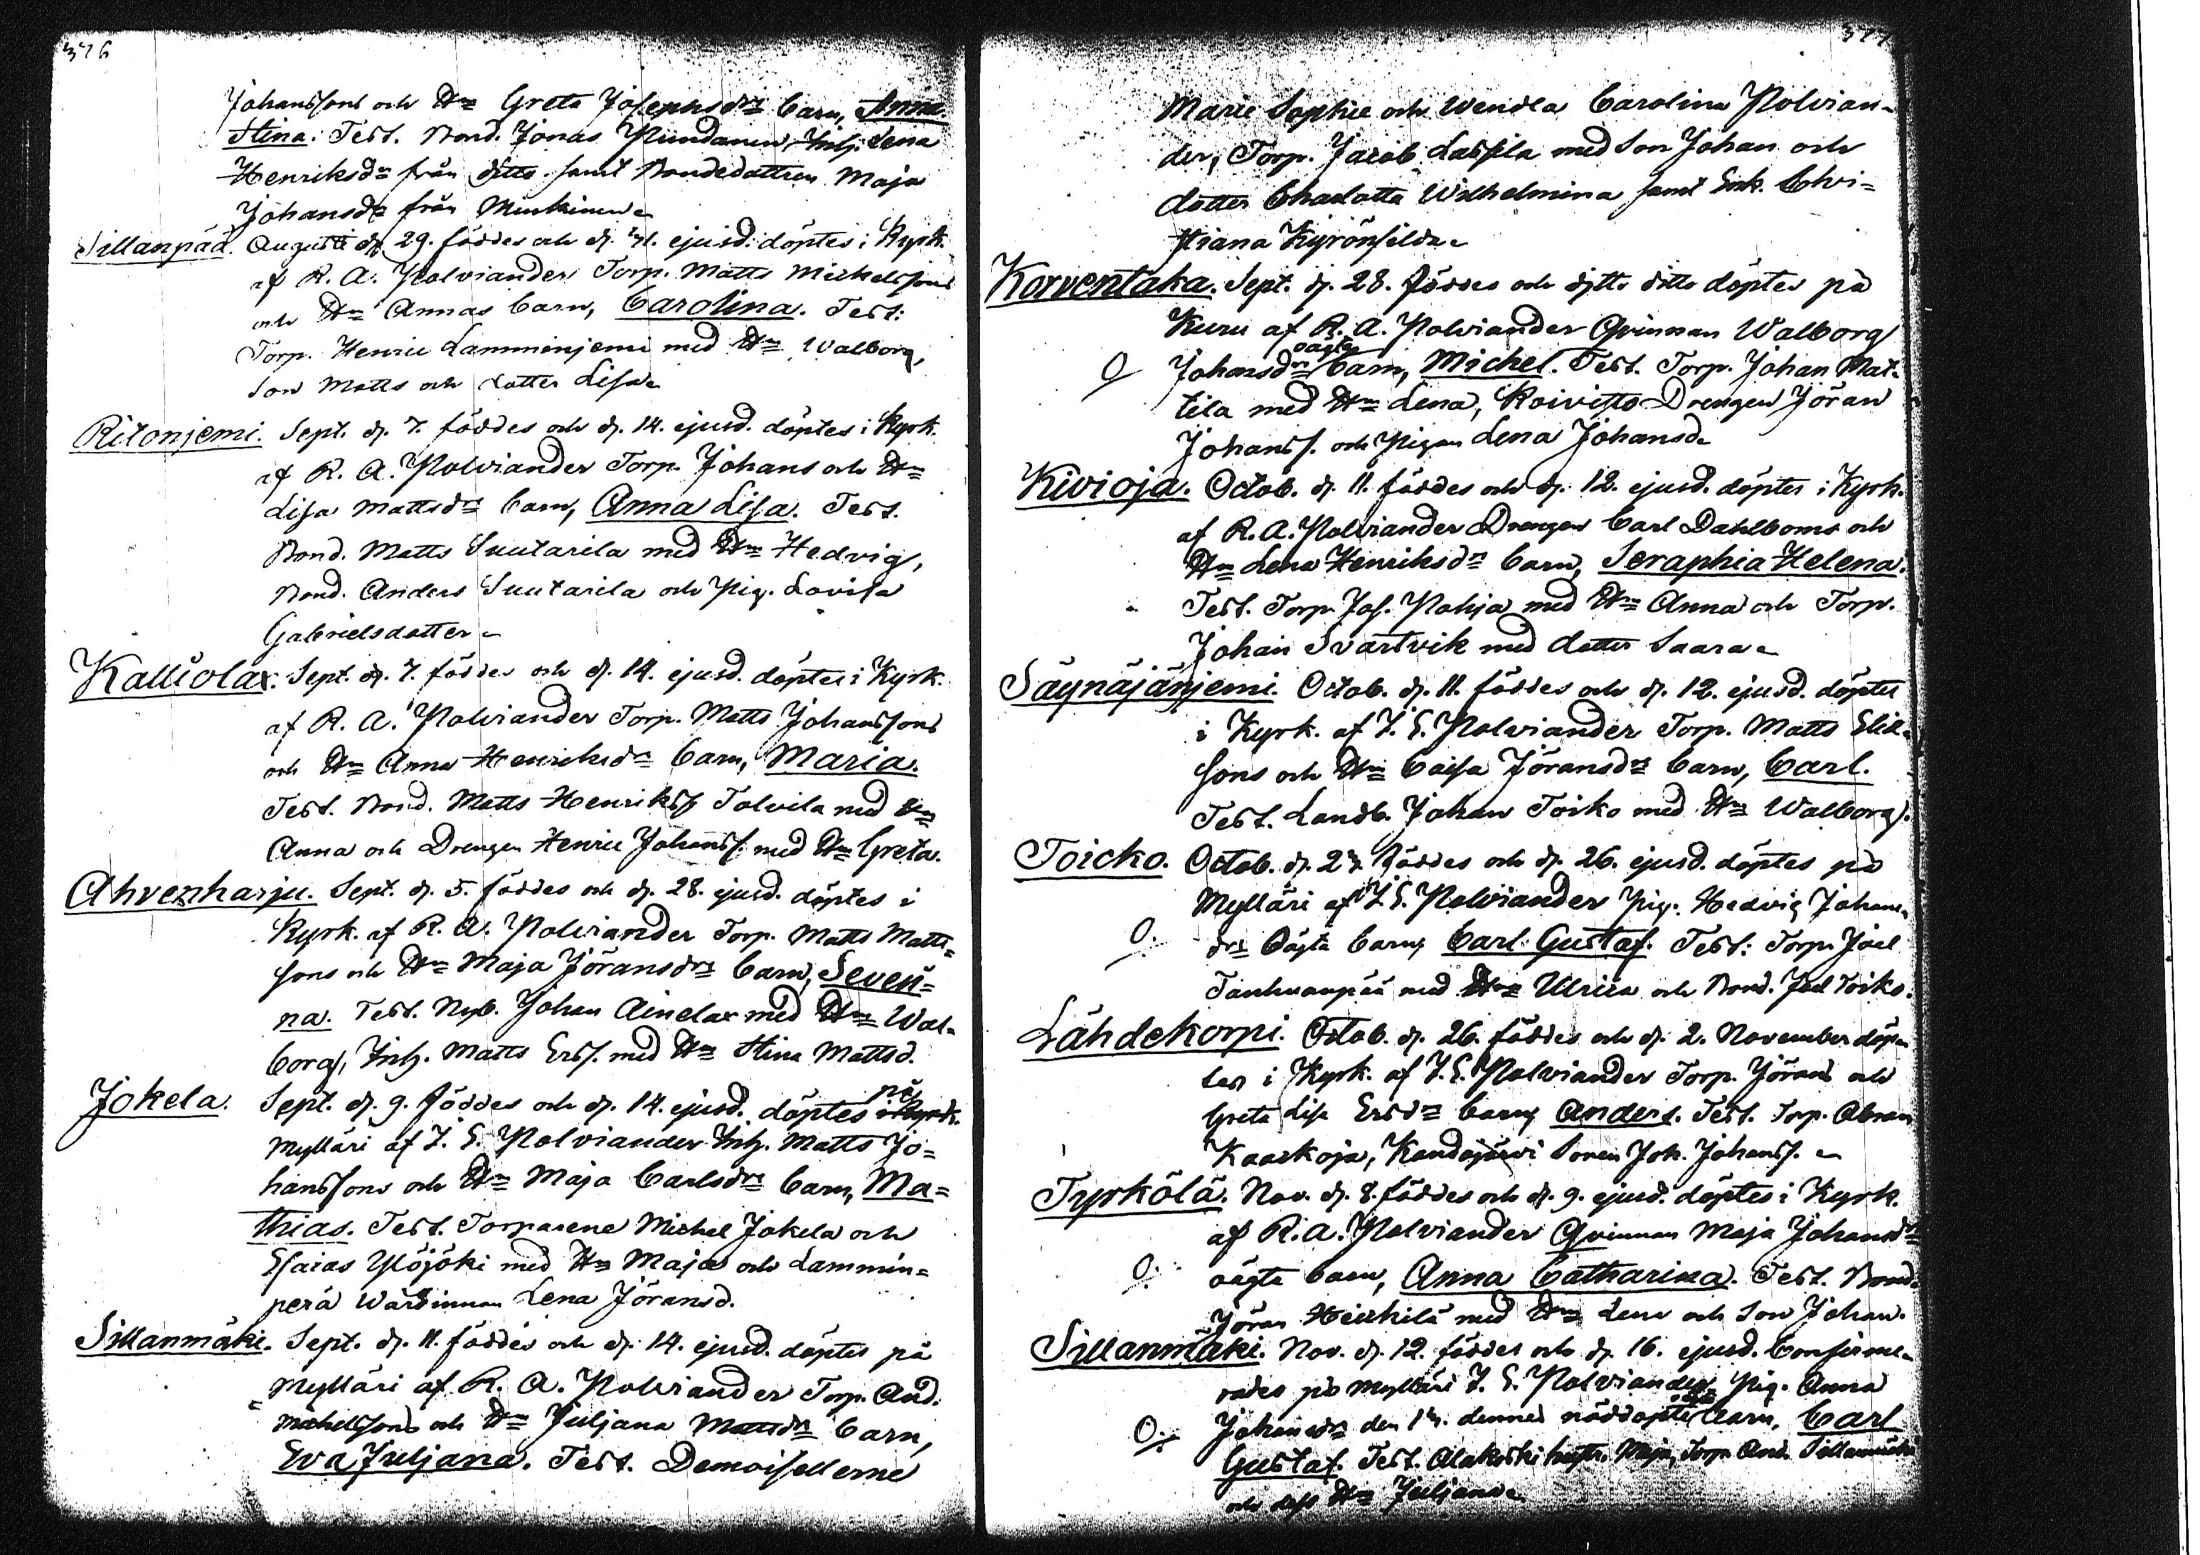 376
Johanssons och H:n Greta Josephsd:rs barn, Anna
Stina. Test. Bond. Jonas Inh. Lena
Henriksd:r från ditto samt Bondedottren Maja
Johansd:r från
Sillanpää. Augusti d. 29. föddes och d. 31. ejusd. döptes i Kyrk.
af R. A. Polviander Torp. Matts Michelssons
och H:n Annas barn, Carolina. Test:
Torp. Henric Lamminjemi med H:n Walborg,
son Matts och dotter Lisa
Ritonjemi. Sept. d. 7. föddes och d. 14. ejusd. döptes i Kyrk.
af R. A. Polviander Torp. Johans och H:n
Lisa Mattsd:rs barn, Anna Lisa. Test.
Bond. Matts Suutarila med H:n Hedvig,
Bond. Anders Suutarila och Pig. Lovisa
Gabrielsdotter
Kalliolax. Sept. d. 7. föddes och d. 14. ejusd. döptes i Kyrk.
af R. A. Polviander Torp. Matts Johanssons
och H:n Anna Henriksd:rs barn, Maria.
Test. Bond. Matts Henrikss. Tolvila med H:n
Anna och Drengen Henric Johanss. med H:n Greta.
Ahvenharju. Sept. d. 5. föddes och d. 28. ejusd. döptes i
Kyrk. af R. A. Polviander Torp. Matts Matts-
sons och H:n Maja Jöransd:rs barn, Seven=
na. Test. Nyb. Johan Ainelax med H:n Wal-
borg, Inh. Matts Erss. med H:n Stina Mattsd.
Jokela. Sept. d. 9. föddes och d. 14. ejusd. döptes på
Mylläri af J. E. Polviander Inh. Matts Jo=
hanssons och H:n Maja Carlsd:rs barn, Ma=
thias. Test. Torparene Michel Jokela och
Esaias Ylöjöki med H:n Maja och Lammin=
perä Wärdinnan Lena Jöransd.
Sillanmäki. Sept. d. 11. föddes och d. 14. ejusd. döptes på
Mylläri af R. A. Polviander Torp. And.
Michelssons och H:n Juljana Mattsd:rs barn,
Eva Juljana. Test. Demoisellerne
377
Marie Sophie och Wendla Carolina Polvian-
der, Torp. Jacob Lassila med son Johan och
dotter Charlotta Wilhelmina samt Enk. Chri=
stiana Kyrönfelda
Korventaka. Sept. d. 28. föddes och ditto ditto döptes på
Kuru af R. A. Polviander Qvinnan Walborg
O Johansd:rs oägta barn, Michel. Test. Torp. Johan Mat-
tila med H:n Lena, Koivisto Drengen Jöran
Johanss. och Pigan Lena Johansd.
Kivioja. Octob. d. 11. föddes och d. 12. ejusd. döptes i Kyrk.
af R. A. Polviander Drengen Carl Dahlboms och
H:n Lena Henriksd:rs barn, Seraphia Helena.
Test. Torp. Jos. Pohja med H:n Anna och Torp.
Johan Svartvik med dotter Saara
Säynäjänjemi. Octob. d. 11. föddes och d. 12. ejusd. döptes
i Kyrk. af J. E. Polviander Torp. Matts Elia-
sons och H:n Caisa Jöransd:rs barn, Carl.
Test. Landb. Johan Toiko med H:n Walborg.
Toicko. Octob. d. föddes och d. 26. ejusd. döptes på
Mylläri af J. E. Polviander Pig. Hedvig Johans-
O. d:rs Oägta barn, Carl Gustaf. Test: Torp. Joel
Tanhuanpää med H:n Ulrica och Bond. Joel Toiko.
Lähdekorpi. Octob. d. 26. föddes och d. 2. November döp-
tes i Kyrk. af J. E. Polviander Torp. Jörans och
Greta Lisa Ersd:rs barn, Anders. Test. Torp. Abram
Kaarkoja, Joh. Johanss.
Tyrkölä. Nov. d. 8. föddes och d. 9. ejusd. döptes i Kyrk.
af R. A. Polviander Qvinnan Maja Johansd:rs
O. oägta barn, Anna Catharina. Test. Bond.
Jöran Heickilä med H:n Lena och son Johan.
Sillanmäki. Nov. d. 12. föddes och d. 16. ejusd. Confirme-
rades på Mylläri J. E. Polviander Pig. Anna
O. Johansd:rs den dennes nöddöpte oägta barn, Carl
Gustaf. Test. Alakoski Maja, Torp. And. Sillanmäki
och dess H:n Juljana